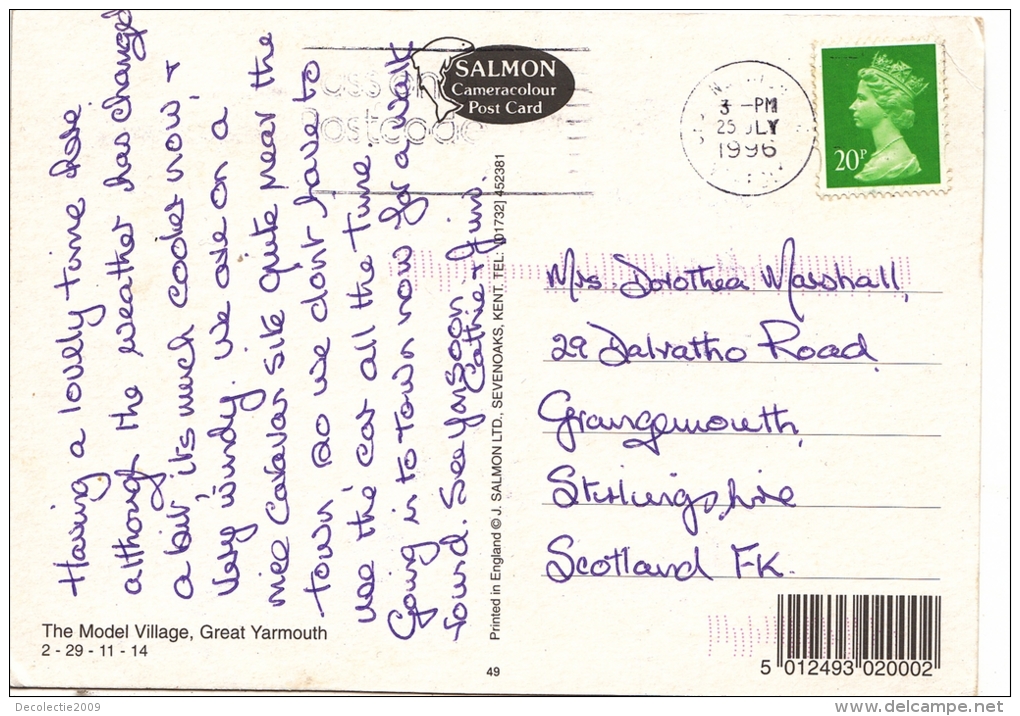 Having a lovely time here
although the weather has changed
a bit, it's much cooler now, +
very windy. We are on a
nice Caravan site quite near the
town so we don't have to
use the car all the time.
Going in to town now for a walk
round. See ya soon
Cathie + Jim.
The Model Village, Great Yarmouth
2 - 29 - 11 - 14
Printed in England © J. SALMON LTD., SEVENOAKS, KENT. TEL: [01732] 452381
49
SALMON
Cameracolour
Post Card
Pass on
Postcode
3 -PM
25 JLY
1996
20P
Mrs. Dorothea Marshall,
29 Dalratho Road
Grangemouth,
Stirlingshire
Scotland FK.
5 012493 020002
Decolectie2009
www.delcampe.net